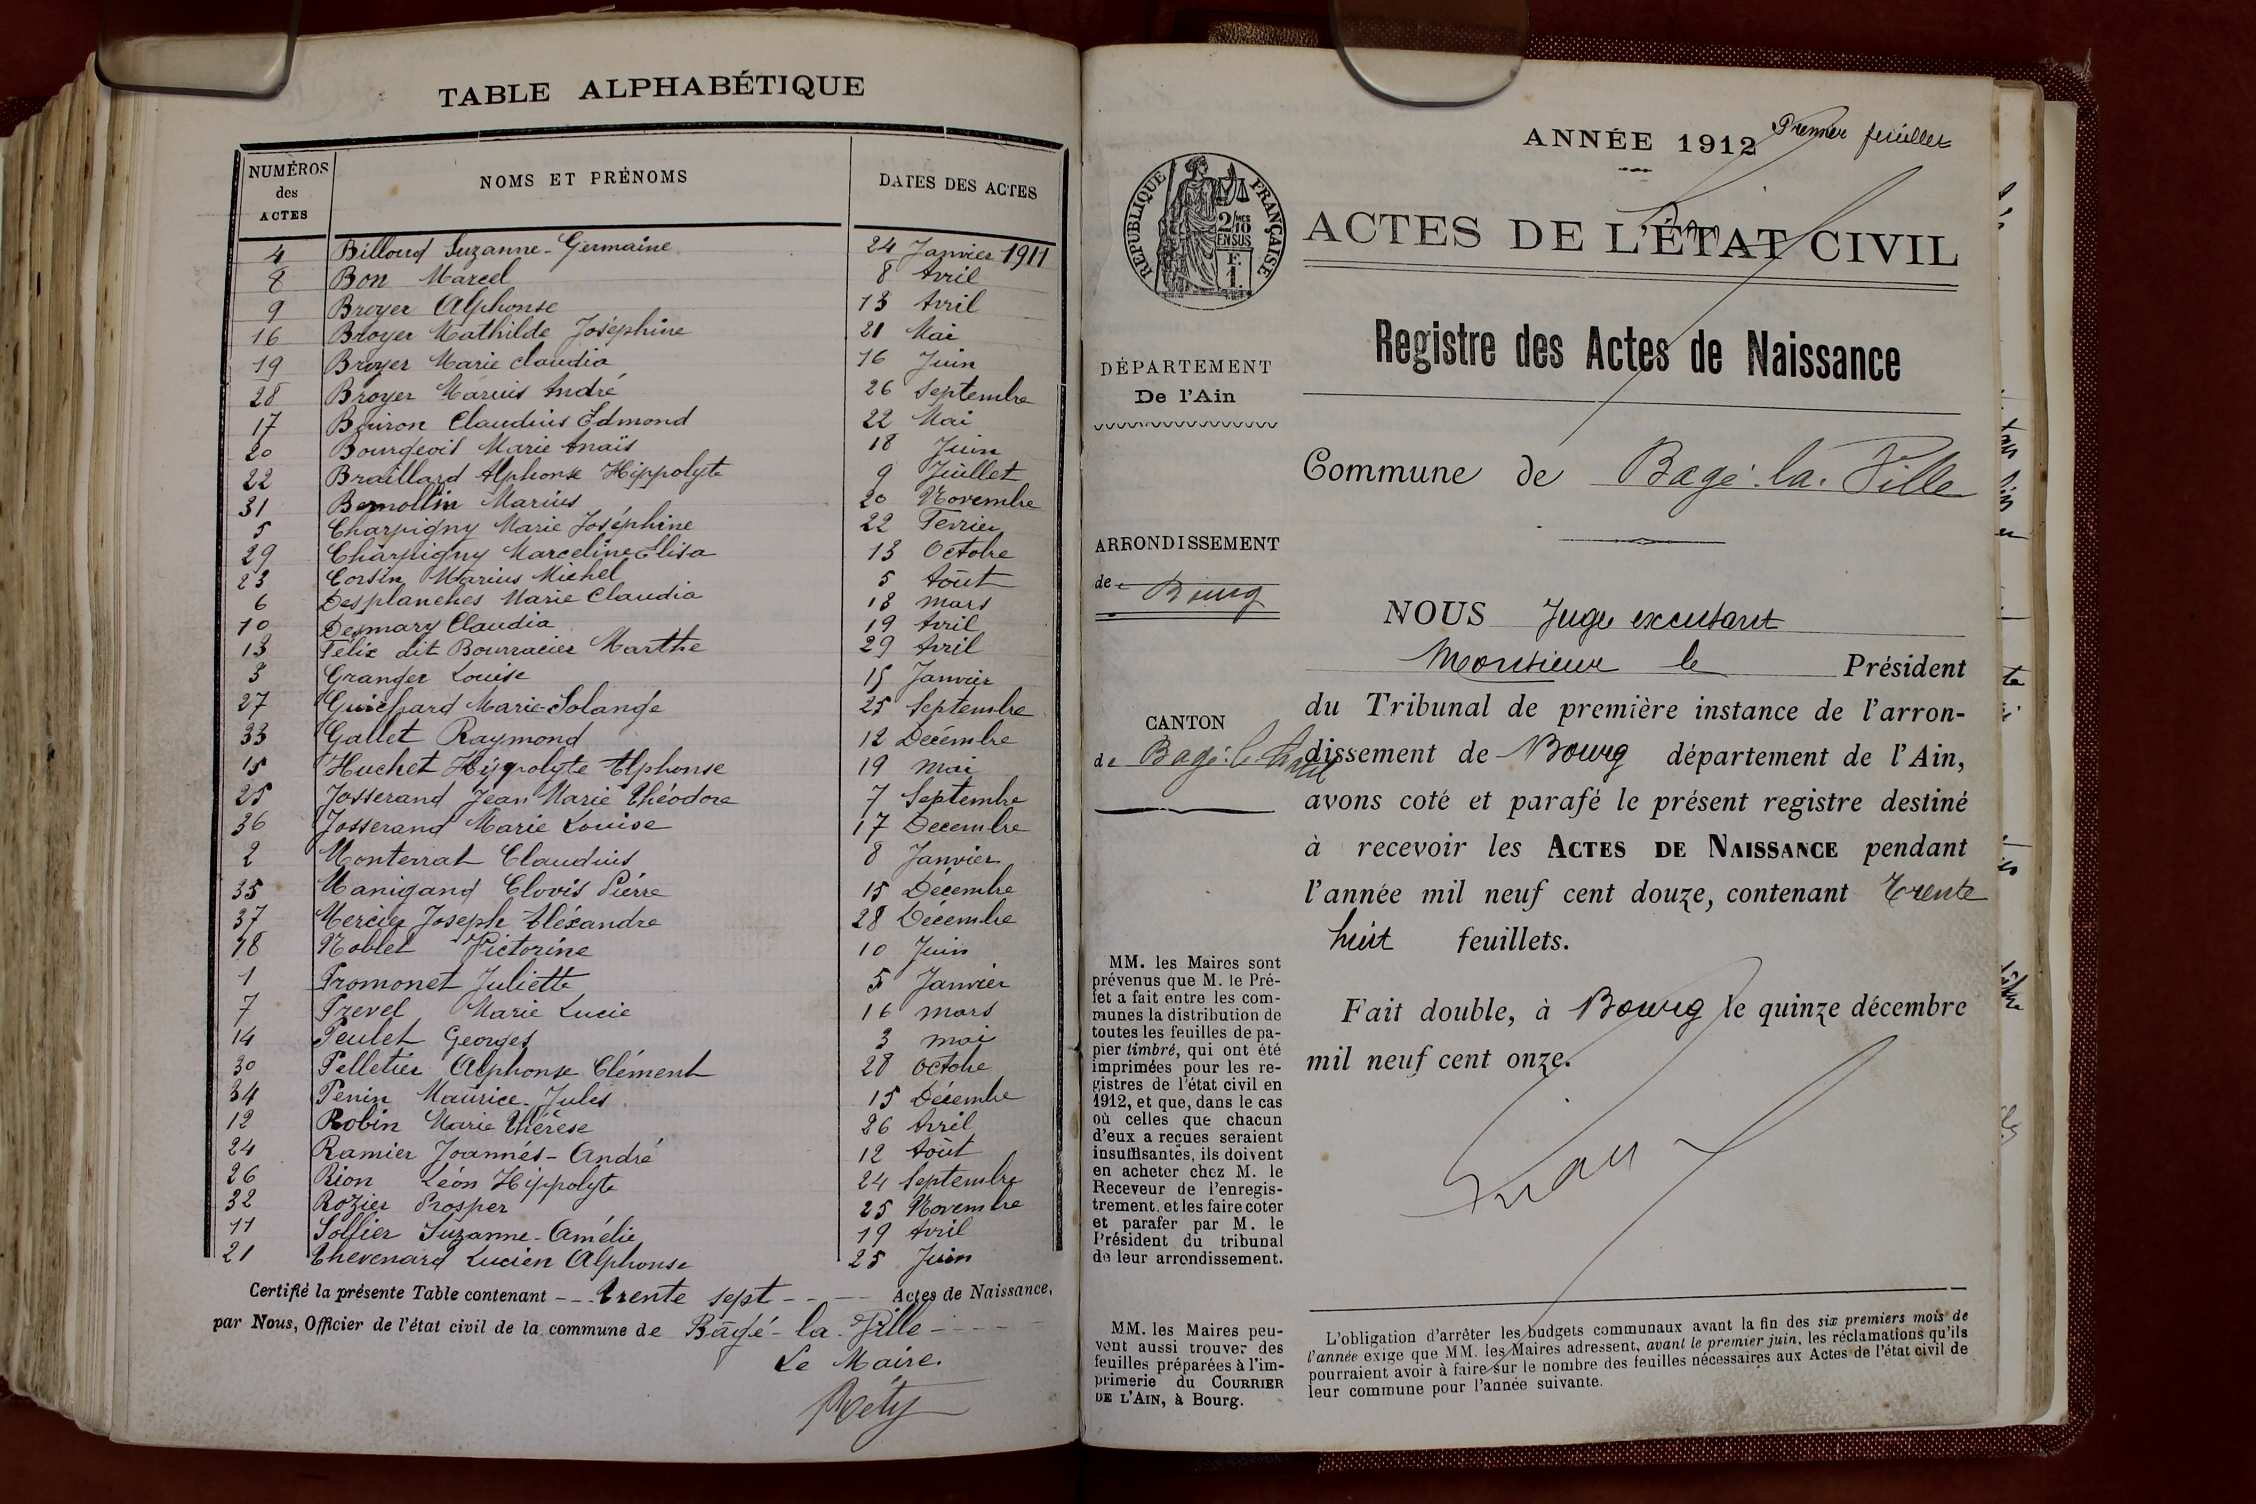 TABLE ALPHABÉTIQUE
NUMÉROS des ACTES NOMS ET PRÉNOMS DATES DES ACTES
4 Billoud Suzanne-Germaine 24 Janvier 1911
8 Bon Marcel 8 Avril
9 Broyer Alphonse 13 Avril
16 Broyer Mathilde Joséphine 21 Mai
19 Broyer Marie Claudia 16 Juin
28 Broyer Marius André 26 Septembre
17 Buiron Claudius Edmond 22 Mai
20 Bourgeois Marie Anaïs 18 Juin
22 Braillard Alphonse Hippolyte 9 Juillet
31 Bernollin Marius 20 Novembre
5 Charpigny Marie Joséphine 22 Fevrier
29 Charpigny Marceline Elisa 13 Octobre
23 Corsin Marius Michel 5 Août
6 Desplanches Marie Claudia 13 mars
10 Desmary Claudia 19 Avril
13 Félix dit Bourracier Marthe 29 Avril
3 Granger Louise 15 Janvier
27 Guichard Marie-Solange 25 Septembre
33 Gallet Raymond 12 Decembre
15 Huchet Hippolyte Alphonse 19 mai
25 Josserand Jean Marie Théodore 7 Septembre
36 Josserand Marie Louise 17 Decembre
2 Monterrat Claudius 8 Janvier
35 Manigand Clovis Pierre 15 Décembre
37 Mercier Joseph Aléxandre 28 Décembre
18 Noblet Victorine 10 Juin
1 Promonet Juliette 5 Janvier
7 Prevel Marie Lucie 16 mars
14 Peulet Georges 3 mai
30 Pelletier Alphonse Clément 28 Octobre
34 Penin Maurice-Jules 15 Décembre
12 Robin Marie Thérèse 26 Avril
24 Ramier Joannés-André 12 Août
26 Rion Léon Hippolyte 24 Septembre
32 Rozier Prosper 25 Novembre
11 Sollier Suzanne-Amélie 19 Avril
21 Thevenard Lucien Alphonse 25 Juin
Certifié la présente Table contenant trente sept Actes de Naissance,
par Nous, Officier de l'état civil de la commune de Bâgé-la-Ville
Le Maire.
Réty
ANNÉE 1912 Premier feuillet
RÉPUBLIQUE FRANÇAISE
2/10 MES
EN SUS
F.
1.
ACTES DE L'ÉTAT CIVIL
Registre des Actes de Naissance
DÉPARTEMENT
De l'Ain
Commune de Bagé-la-Ville
ARRONDISSEMENT
de Bourg
CANTON
de Bagé-le-Chatel
NOUS Juge excusant
Monsieur le Président
du Tribunal de première instance de l'arron-
dissement de Bourg département de l'Ain,
avons coté et parafé le présent registre destiné
à recevoir les ACTES DE NAISSANCE pendant
l'année mil neuf cent douze, contenant trente
huit feuillets.
Fait double, à Bourg le quinze décembre
mil neuf cent onze.
MM. les Maires sont
prévenus que M. le Pré-
fet a fait entre les com-
munes la distribution de
toutes les feuilles de pa-
pier timbré, qui ont été
imprimées pour les re-
gistres de l'état civil en
1912, et que, dans le cas
où celles que chacun
d'eux a reçues seraient
insuffisantes, ils doivent
en acheter chez M. le
Receveur de l'enregis-
trement, et les faire coter
et parafer par M. le
Président du tribunal
de leur arrondissement.
MM. les Maires peu-
vent aussi trouver des
feuilles préparées à l'im-
primerie du COURRIER
DE L'AIN, à Bourg.
L'obligation d'arrêter les budgets communaux avant la fin des six premiers mois de
l'année exige que MM. les Maires adressent, avant le premier juin, les réclamations qu'ils
pourraient avoir à faire sur le nombre des feuilles nécessaires aux Actes de l'état civil de
leur commune pour l'année suivante.